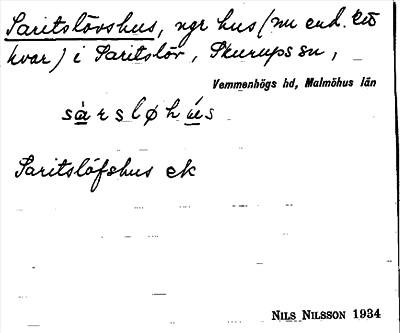 Saritslövshus, ngr hus (nu end. ett
kvar) i Saritslöv, Skurups sn,
Vemmenhögs hd, Malmöhus län
sàrsløhu̍s
Saritslöfshus ek
NILS NILSSON 1934